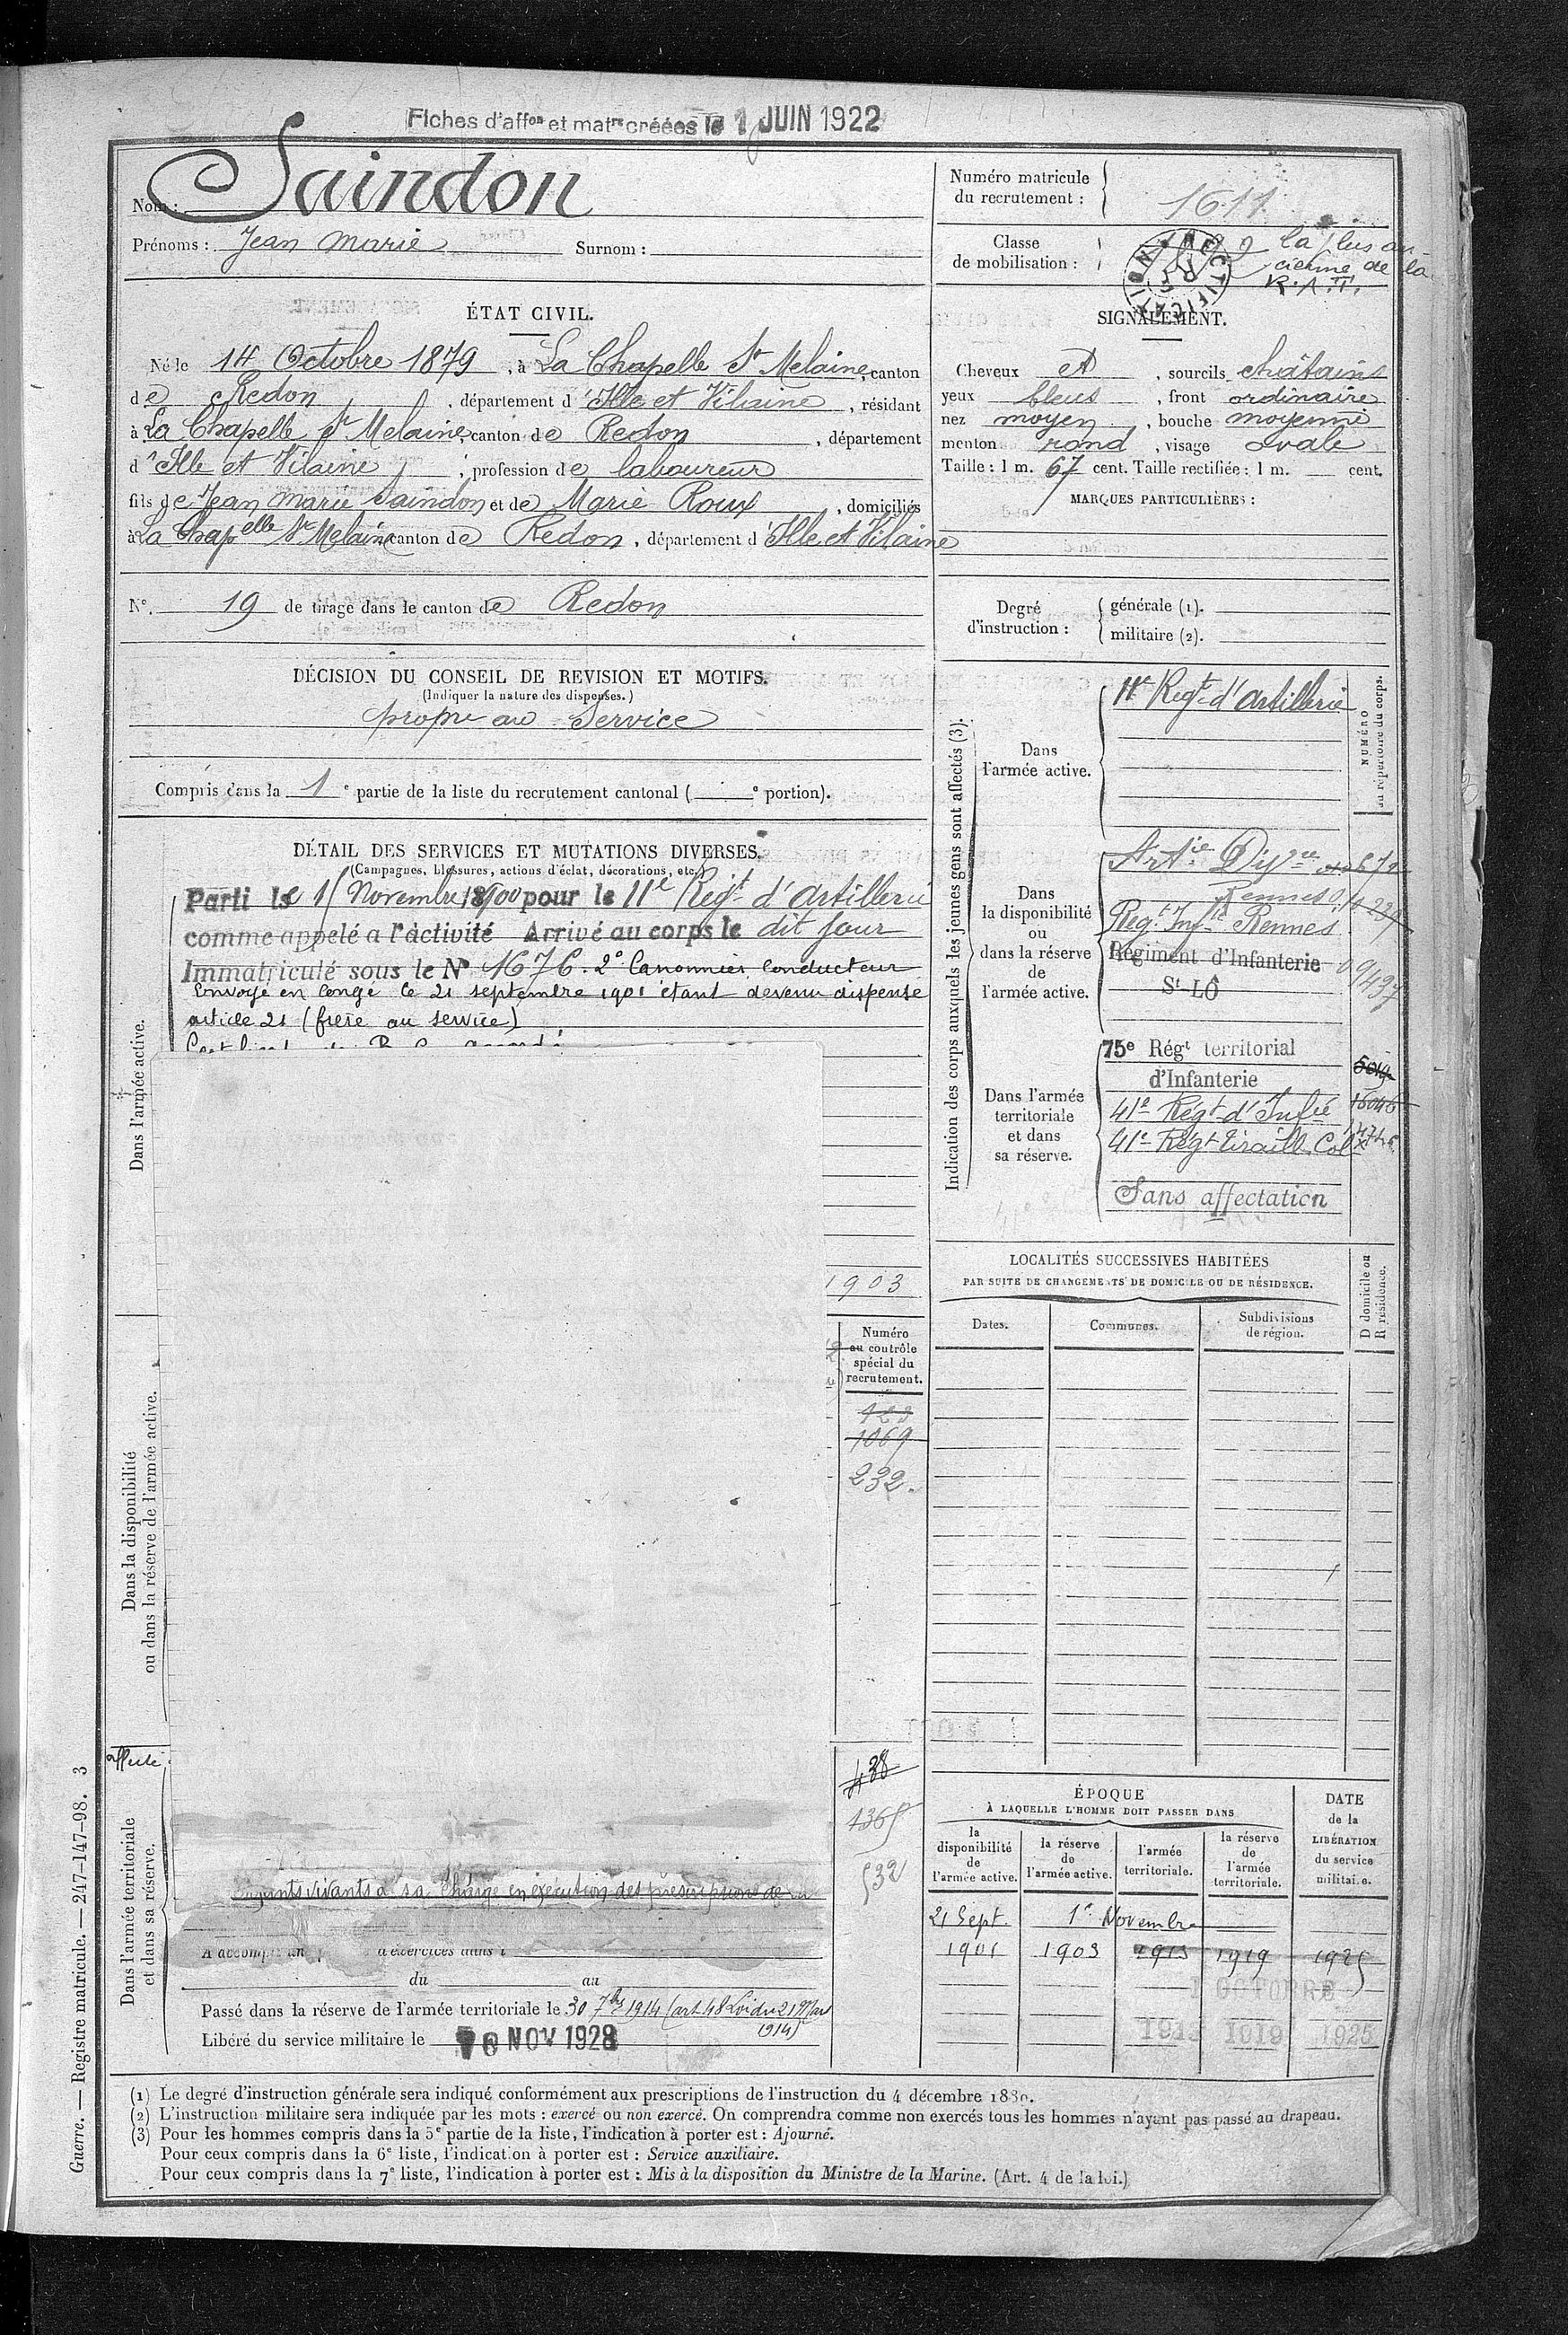 Fiches d'affon et matre créées le 1 JUIN 1922
Nom : Saindon
Prénoms : Jean Marie Surnom :
Numéro matricule
du recrutement : 1611
Classe
de mobilisation :
la plus an
cienne de la
R.A.T.
RECTIFICATION
ÉTAT CIVIL.
Né le 14 Octobre 1879, à La Chapelle St Melaine, canton
de Redon, département d'Ille et Vilaine, résidant
à La Chapelle St Melaine, canton de Redon, département
d'Ille et Vilaine, profession de laboureur
fils de Jean Marie Saindon et de Marie Roux, domiciliés
à La Chapelle Ste Melaine canton de Redon, département d'Ille et Vilaine
N°. 19 de tirage dans le canton de Redon
SIGNALEMENT.
Cheveux et, sourcils châtains
yeux bleus, front ordinaire
nez moyen, bouche moyenne
menton rond, visage ovale
Taille : 1 m. 67 cent. Taille rectifiée : 1 m. cent.
MARQUES PARTICULIÈRES :
Degré
d'instruction :
générale (1).
militaire (2).
DÉCISION DU CONSEIL DE REVISION ET MOTIFS.
(Indiquer la nature des dispenses.)
propre au Service
Compris dans la 1e partie de la liste du recrutement cantonal ( e portion).
DÉTAIL DES SERVICES ET MUTATIONS DIVERSES.
(Campagnes, blessures, actions d'éclat, décorations, etc.)
Parti le 1 Novembre 1900 pour le 11e Régt d'Artillerie
comme appelé a l'activité Arrivé au corps le dit jour
Immatriculé sous le N° 1676. 2e Canonnier Conducteur
Envoyé en congé le 21 septembre 1901 étant devenu dispensé
article 21 (frère au service)
Dans l'armée active.
1903
Numéro
au contrôle
spécial du
recrutement.
123
1069
232.
Dans la disponibilité
ou dans la réserve de l'armée active.
affecté
438
1365
532
Dans l'armée territoriale
et dans sa réserve.
vivants à sa charge en exécution des prescriptions de
A accompli un d'exercices dans l
du au
Passé dans la réserve de l'armée territoriale le 30 7bre 1914 (art 48 Loi du 21 Mars
1914)
Libéré du service militaire le 10 NOV 1928
Indication des corps auxquels les jeunes gens sont affectés (3).
Dans
l'armée active.
11e Régt d'Artillerie
NUMÉRO
au répertoire du corps.
Dans
la disponibilité
ou
dans la réserve
de
l'armée active.
Artie Divre
Rennes
Régt Infie Rennes
Régiment d'Infanterie
St-LÔ
09437
Dans l'armée
territoriale
et dans
sa réserve.
75e Régt territorial
d'Infanterie
41e Régt d'Infie
41e Régt Tiraill. Col
Sans affectation
LOCALITÉS SUCCESSIVES HABITÉES
PAR SUITE DE CHANGEMENTS DE DOMICILE OU DE RÉSIDENCE.
Dates.
Communes.
Subdivisions
de région.
D domicile ou
R résidence.
ÉPOQUE
À LAQUELLE L'HOMME DOIT PASSER DANS
DATE
de la
LIBÉRATION
du service
militaire.
la
disponibilité
de
l'armée active.
la réserve
de
l'armée active.
l'armée
territoriale.
la réserve
de
l'armée
territoriale.
21 Sept. 1er Novembre
1901 1903 1913 1919 1925
1 OCTOBRE
1913 1919 1925
(1) Le degré d'instruction générale sera indiqué conformément aux prescriptions de l'instruction du 4 décembre 1880.
(2) L'instruction militaire sera indiquée par les mots : exercé ou non exercé. On comprendra comme non exercés tous les hommes n'ayant pas passé au drapeau.
(3) Pour les hommes compris dans la 5e partie de la liste, l'indication à porter est : Ajourné.
Pour ceux compris dans la 6e liste, l'indication à porter est : Service auxiliaire.
Pour ceux compris dans la 7e liste, l'indication à porter est : Mis à la disposition du Ministre de la Marine. (Art. 4 de la loi.)
Guerre. — Registre matricule. — 247-147-98. 3